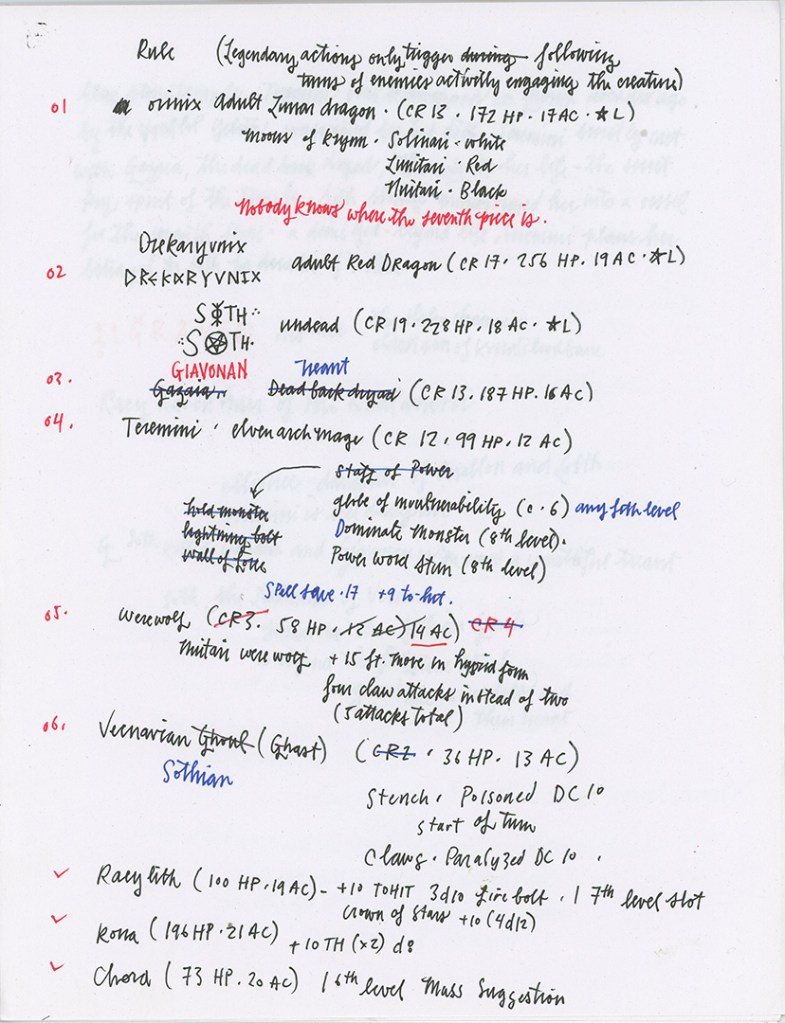 Rule (Legendary actions only trigger during following
turns of enemies actively engaging the creature)
01 orinix Adult Lunar dragon · (CR 13 · 172 HP · 17 AC · ★ L)
moons of krynn · Solinari · white
Lunitari · Red
Nuitari · Black
Nobody knows where the seventh piece is.
Drekaryvnix
02 DREKARYVNIX adult Red DRagon (CR 17 · 256 HP · 19 AC · ★ L)
SOTH
SOTH undead (CR 19 · 228 HP · 18 AC · ★ L)
GIAVONAN Treant
03. Gazaia Dead bark dryad (CR 13 · 187 HP · 16 AC)
04. Teremini · elven archmage (CR 12 · 99 HP · 12 AC)
Staff of Power
hold monster globe of invulnerability (0·6) any 6th level
lightning bolt Dominate Monster (8th level).
wall of force Power word Stun (8th level)
Spell save · 17 +9 to-hit.
05. Werewolf (CR 3 · 58 HP · 12 AC) 14 AC) CR 4
Nuitari werewolf +15 ft. more in hybrid form
four claw attacks instead of two
(5 attacks total)
06. Vecnavian Ghoul (Ghast) (CR2 · 36 HP · 13 AC)
Sothian
Stench · Poisoned DC 10
start of turn
Claws · Paralyzed DC 10 ·
✓ Raeylith (100 HP · 19 AC) - +10 TOHIT 3d10 fire bolt · 1 7th level slot
crown of stars +10 (4d12)
✓ Rona (196 HP · 21 AC) +10 TH (x2) d8
✓ Chord (73 HP · 20 AC) 1 6th level Mass Suggestion